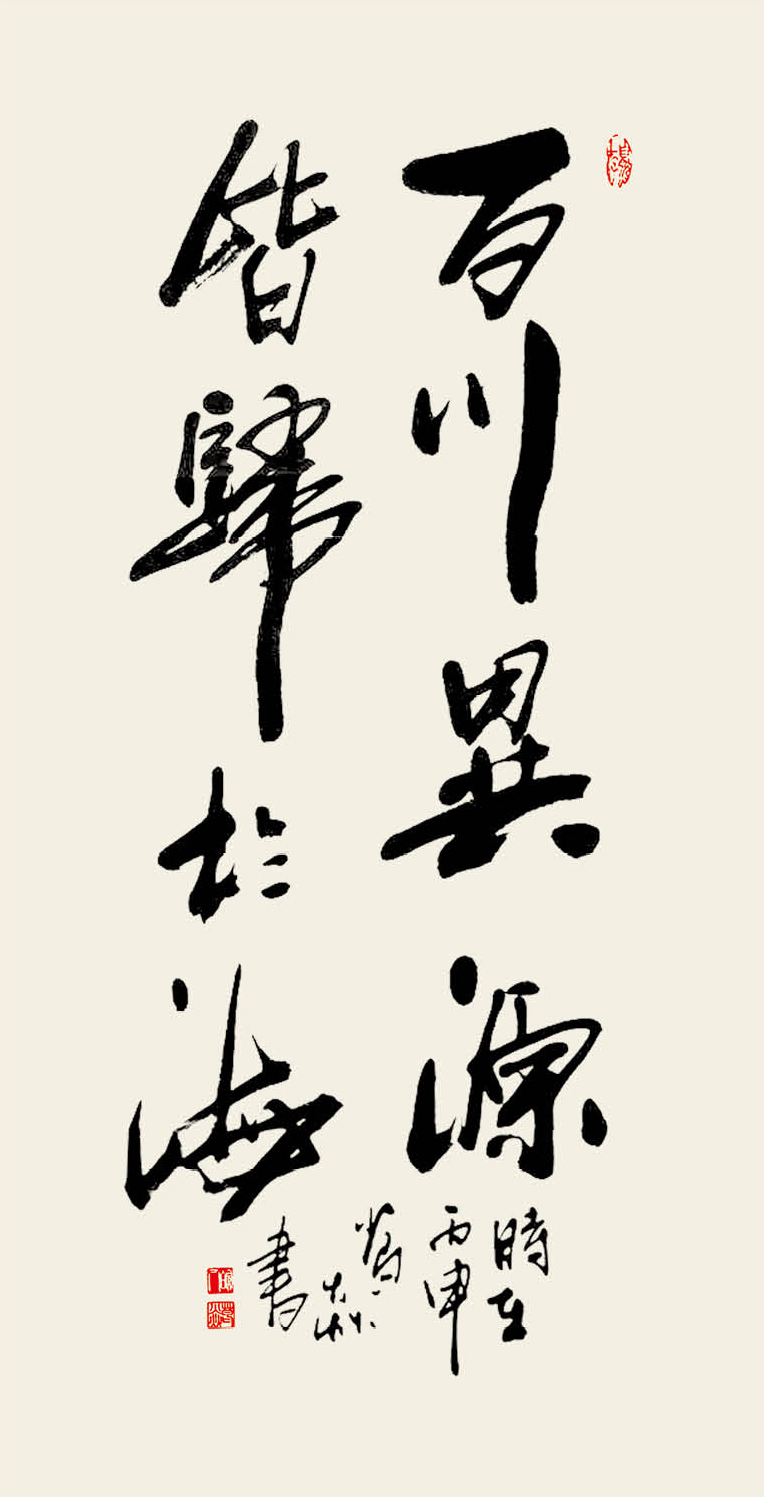 百川異源
皆歸於海
時在
丙申
書